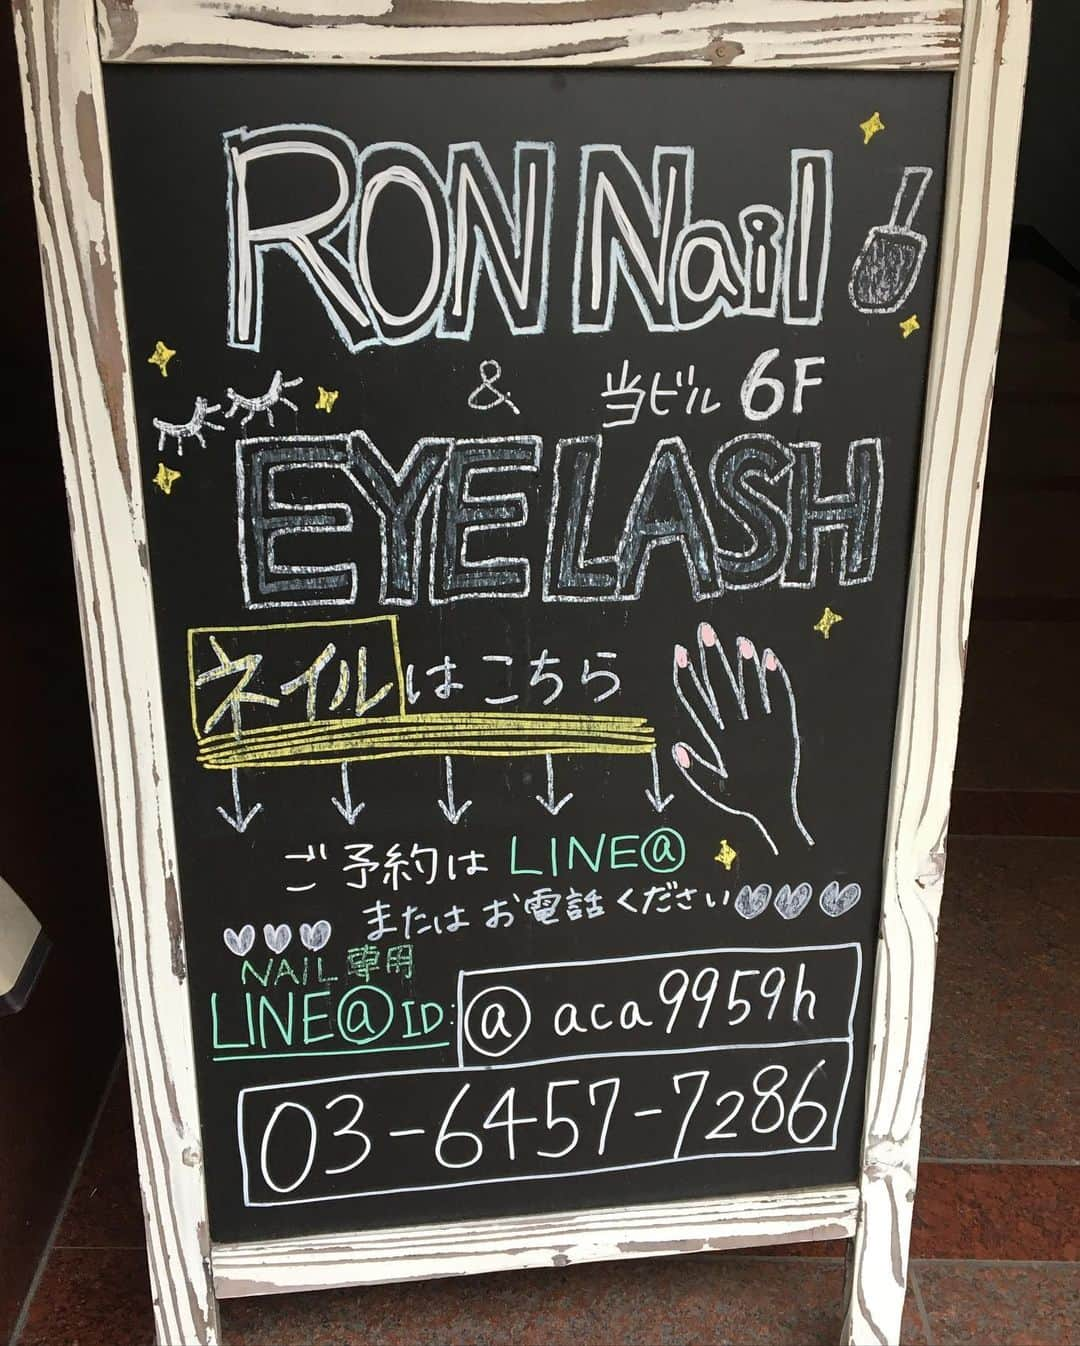 RON Nail
& 当ビル 6F
EYELASH
ネイルはこちら
ご予約は LINE@
またはお電話ください
NAIL専用
LINE@ID: @aca9959h
03-6457-7286